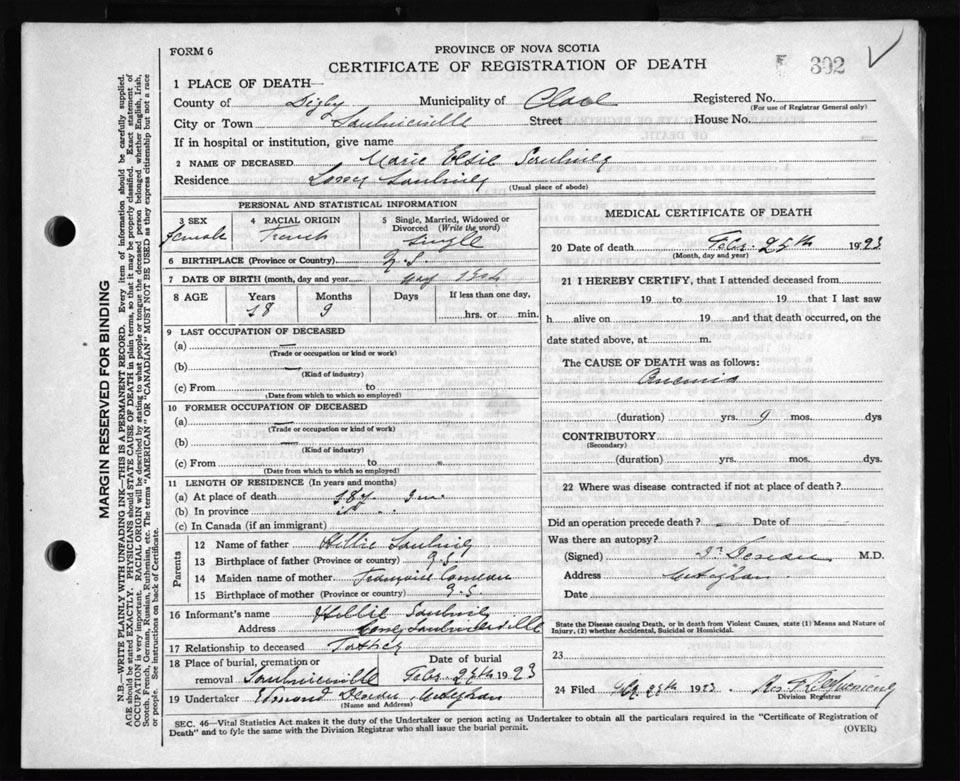 FORM 6
PROVINCE OF NOVA SCOTIA
CERTIFICATE OF REGISTRATION OF DEATH
392
1 PLACE OF DEATH
County of Digby Municipality of Clare Registered No.
(For use of Registrar General only)
City or Town Saulnierville Street House No.
If in hospital or institution, give name
2 NAME OF DECEASED Marie Elsie Saulnier
Residence Saulnier
(Usual place of abode)
PERSONAL AND STATISTICAL INFORMATION
3 SEX 4 RACIAL ORIGIN 5 Single, Married, Widowed or Divorced (Write the word)
female French single
6 BIRTHPLACE (Province or Country) N.S.
7 DATE OF BIRTH (month, day and year) May
8 AGE Years Months Days If less than one day,
18 9 hrs. or min.
9 LAST OCCUPATION OF DECEASED
(a) —
(Trade or occupation or kind or work)
(b) —
(Kind of industry)
(c) From to
(Date from which to which so employed)
10 FORMER OCCUPATION OF DECEASED
(a) —
(Trade or occupation or kind of work)
(b) —
(Kind of industry)
(c) From to
(Date from which to which so employed)
11 LENGTH OF RESIDENCE (In years and months)
(a) At place of death 18y 9m
(b) In province
(c) In Canada (if an immigrant)
Parents
12 Name of father Hillie Saulnier
13 Birthplace of father (Province or country) N.S.
14 Maiden name of mother Françoise Comeau
15 Birthplace of mother (Province or country) N.S.
16 Informant's name Hillie Saulnier
Address Saulnierville
17 Relationship to deceased Father
18 Place of burial, cremation or removal Saulnierville
Date of burial Feb. 1923
19 Undertaker Edmond Deveau Meteghan
(Name and Address)
MEDICAL CERTIFICATE OF DEATH
20 Date of death Feb. 25th 1923
(Month, day and year)
21 I HEREBY CERTIFY, that I attended deceased from
19 to 19 that I last saw
h alive on 19 and that death occurred, on the
date stated above, at m.
The CAUSE OF DEATH was as follows:
Anemia
(duration) yrs. 9 mos. dys
CONTRIBUTORY
(Secondary)
(duration) yrs. mos. dys.
22 Where was disease contracted if not at place of death?
Did an operation precede death? Date of
Was there an autopsy?
(Signed) Dr Deveau M.D.
Address Meteghan
Date
State the Disease causing Death, or in death from Violent Causes, state (1) Means and Nature of Injury, (2) whether Accidental, Suicidal or Homicidal.
23
24 Filed Feb 1923
Division Registrar
SEC. 46—Vital Statistics Act makes it the duty of the Undertaker or person acting as Undertaker to obtain all the particulars required in the "Certificate of Registration of
Death" and to fyle the same with the Division Registrar who shall issue the burial permit. (OVER)
MARGIN RESERVED FOR BINDING
N.B.—WRITE PLAINLY WITH UNFADING INK—THIS IS A PERMANENT RECORD. Every item of information should be carefully supplied.
AGE should be stated EXACTLY. PHYSICIANS should STATE CAUSE OF DEATH in plain terms, so that it may be properly classified. Exact statement of
OCCUPATION is very important. RACIAL ORIGIN will be described by stating to what people or tongue the deceased person belonged whether English, Irish,
Scotch, French, German, Russian, Ruthenian, etc. The terms "AMERICAN" OR "CANADIAN" MUST NOT BE USED as they express citizenship but not a race
or people. See instructions on back of Certificate.